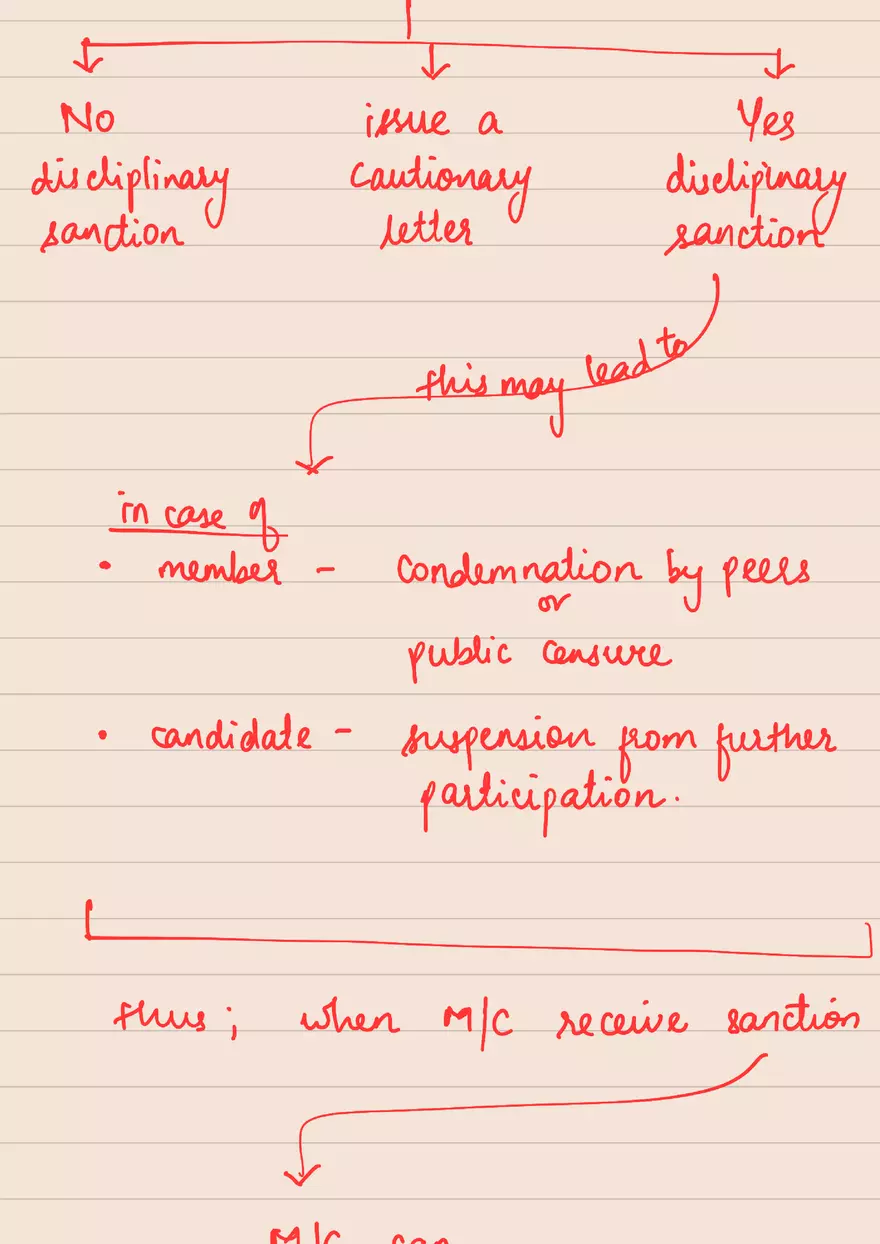 No
discliplinary
sanction
issue a
cautionary
letter
Yes
disclipinary
sanction
this may lead to
in case of
• member - condemnation by peers
or
public censure
• candidate - suspension from further
participation.
thus; when M/C receive sanction
M/C can